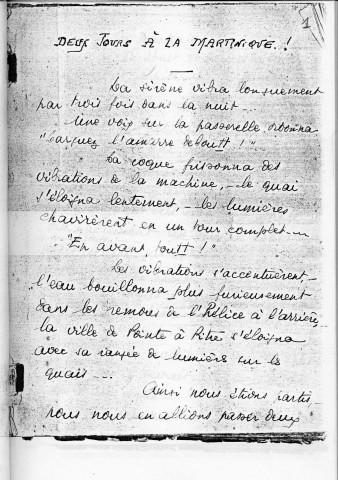 1
DEUX JOURS À LA MARTINIQUE !
La sirène vibra longuement
par trois fois dans la nuit...
Une voix sur la passerelle ordonna
"Larguez l'amarre debout !"
La coque frissonna des
vibrations de la machine, – le quai
s'éloigna lentement, – les lumières
chavirèrent en un tour complet...
"En avant, toutt !"
Les vibrations s'accentuèrent, –
l'eau bouillonna plus furieusement
dans les remous de l'hélice à l'arrière,
la ville de Pointe à Pitre s'éloigna
avec sa rangée de lumière sur le
quais...
Ainsi nous étions partis,
nous nous en allions passer deux